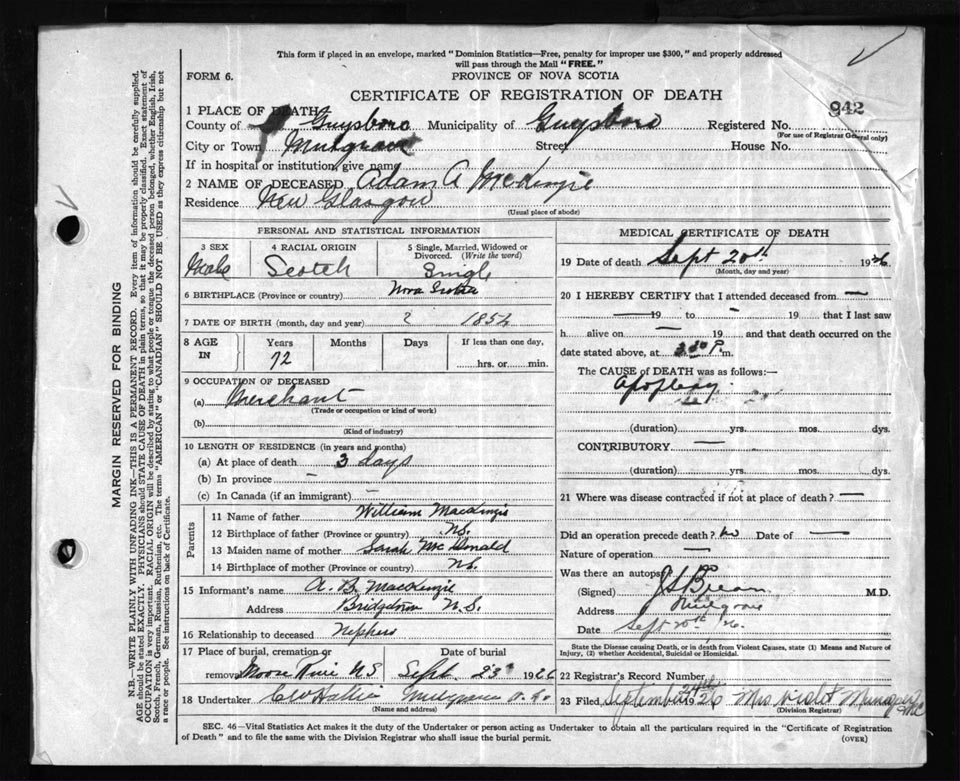 This form if placed in an envelope, marked "Dominion Statistics—Free, penalty for improper use $300," and properly addressed
will pass through the Mail "FREE."
FORM 6.
PROVINCE OF NOVA SCOTIA
CERTIFICATE OF REGISTRATION OF DEATH
942
1 PLACE OF DEATH
County of Guysboro Municipality of Guysboro Registered No.
(For use of Registrar General only)
City or Town Mulgrave Street House No.
If in hospital or institution, give name
2 NAME OF DECEASED Adam A McKenzie
Residence New Glasgow
(Usual place of abode)
PERSONAL AND STATISTICAL INFORMATION
3 SEX 4 RACIAL ORIGIN 5 Single, Married, Widowed or Divorced. (Write the word)
Male Scotch Single
6 BIRTHPLACE (Province or country) Nova Scotia
7 DATE OF BIRTH (month, day and year) ? 1854
8 AGE IN Years Months Days If less than one day,
72 hrs. or min.
9 OCCUPATION OF DECEASED
(a) Merchant
(Trade or occupation or kind of work)
(b)
(Kind of industry)
10 LENGTH OF RESIDENCE (in years and months)
(a) At place of death 3 days
(b) In province —
(c) In Canada (if an immigrant) —
Parents
11 Name of father William MacKenzie
12 Birthplace of father (Province or country) N.S.
13 Maiden name of mother Sarah McDonald
14 Birthplace of mother (Province or country) N.S.
15 Informant's name A. B. MacKenzie
Address N.S.
16 Relationship to deceased Nephew
17 Place of burial, cremation or removal Date of burial
Moose River N.S. Sept. 23 1926
18 Undertaker
(Name and address)
MEDICAL CERTIFICATE OF DEATH
19 Date of death Sept 20th 1926
(Month, day and year)
20 I HEREBY CERTIFY that I attended deceased from —
— 19 to — 19 that I last saw
h alive on — 19 and that death occurred on the
date stated above, at P.m.
The CAUSE of DEATH was as follows:—
Apoplexy
(duration) yrs. mos. dys.
CONTRIBUTORY —
(duration) yrs. mos. dys.
21 Where was disease contracted if not at place of death? —
Did an operation precede death? No Date of —
Nature of operation —
Was there an autopsy
(Signed) M.D.
Address Mulgrave
Date Sept 20th 26.
State the Disease causing Death, or in death from Violent Causes, state (1) Means and Nature of
Injury, (2) whether Accidental, Suicidal or Homicidal.
22 Registrar's Record Number
23 Filed September 1926 Mrs Violet
(Division Registrar)
SEC. 46—Vital Statistics Act makes it the duty of the Undertaker or person acting as Undertaker to obtain all the particulars required in the "Certificate of Registration
of Death" and to file the same with the Division Registrar who shall issue the burial permit.
(OVER)
MARGIN RESERVED FOR BINDING
N.B.—WRITE PLAINLY WITH UNFADING INK—THIS IS A PERMANENT RECORD. Every item of information should be carefully supplied.
AGE should be stated EXACTLY. PHYSICIANS should STATE CAUSE OF DEATH in plain terms, so that it may be properly classified. Exact statement of
OCCUPATION is very important. RACIAL ORIGIN will be described by stating to what people or tongue the deceased person belonged, whether English, Irish,
Scotch, French, German, Russian, Ruthenian, etc. The terms "AMERICAN" or "CANADIAN" SHOULD NOT BE USED as they express citizenship but not
a race or people. See instructions on back of Certificate.